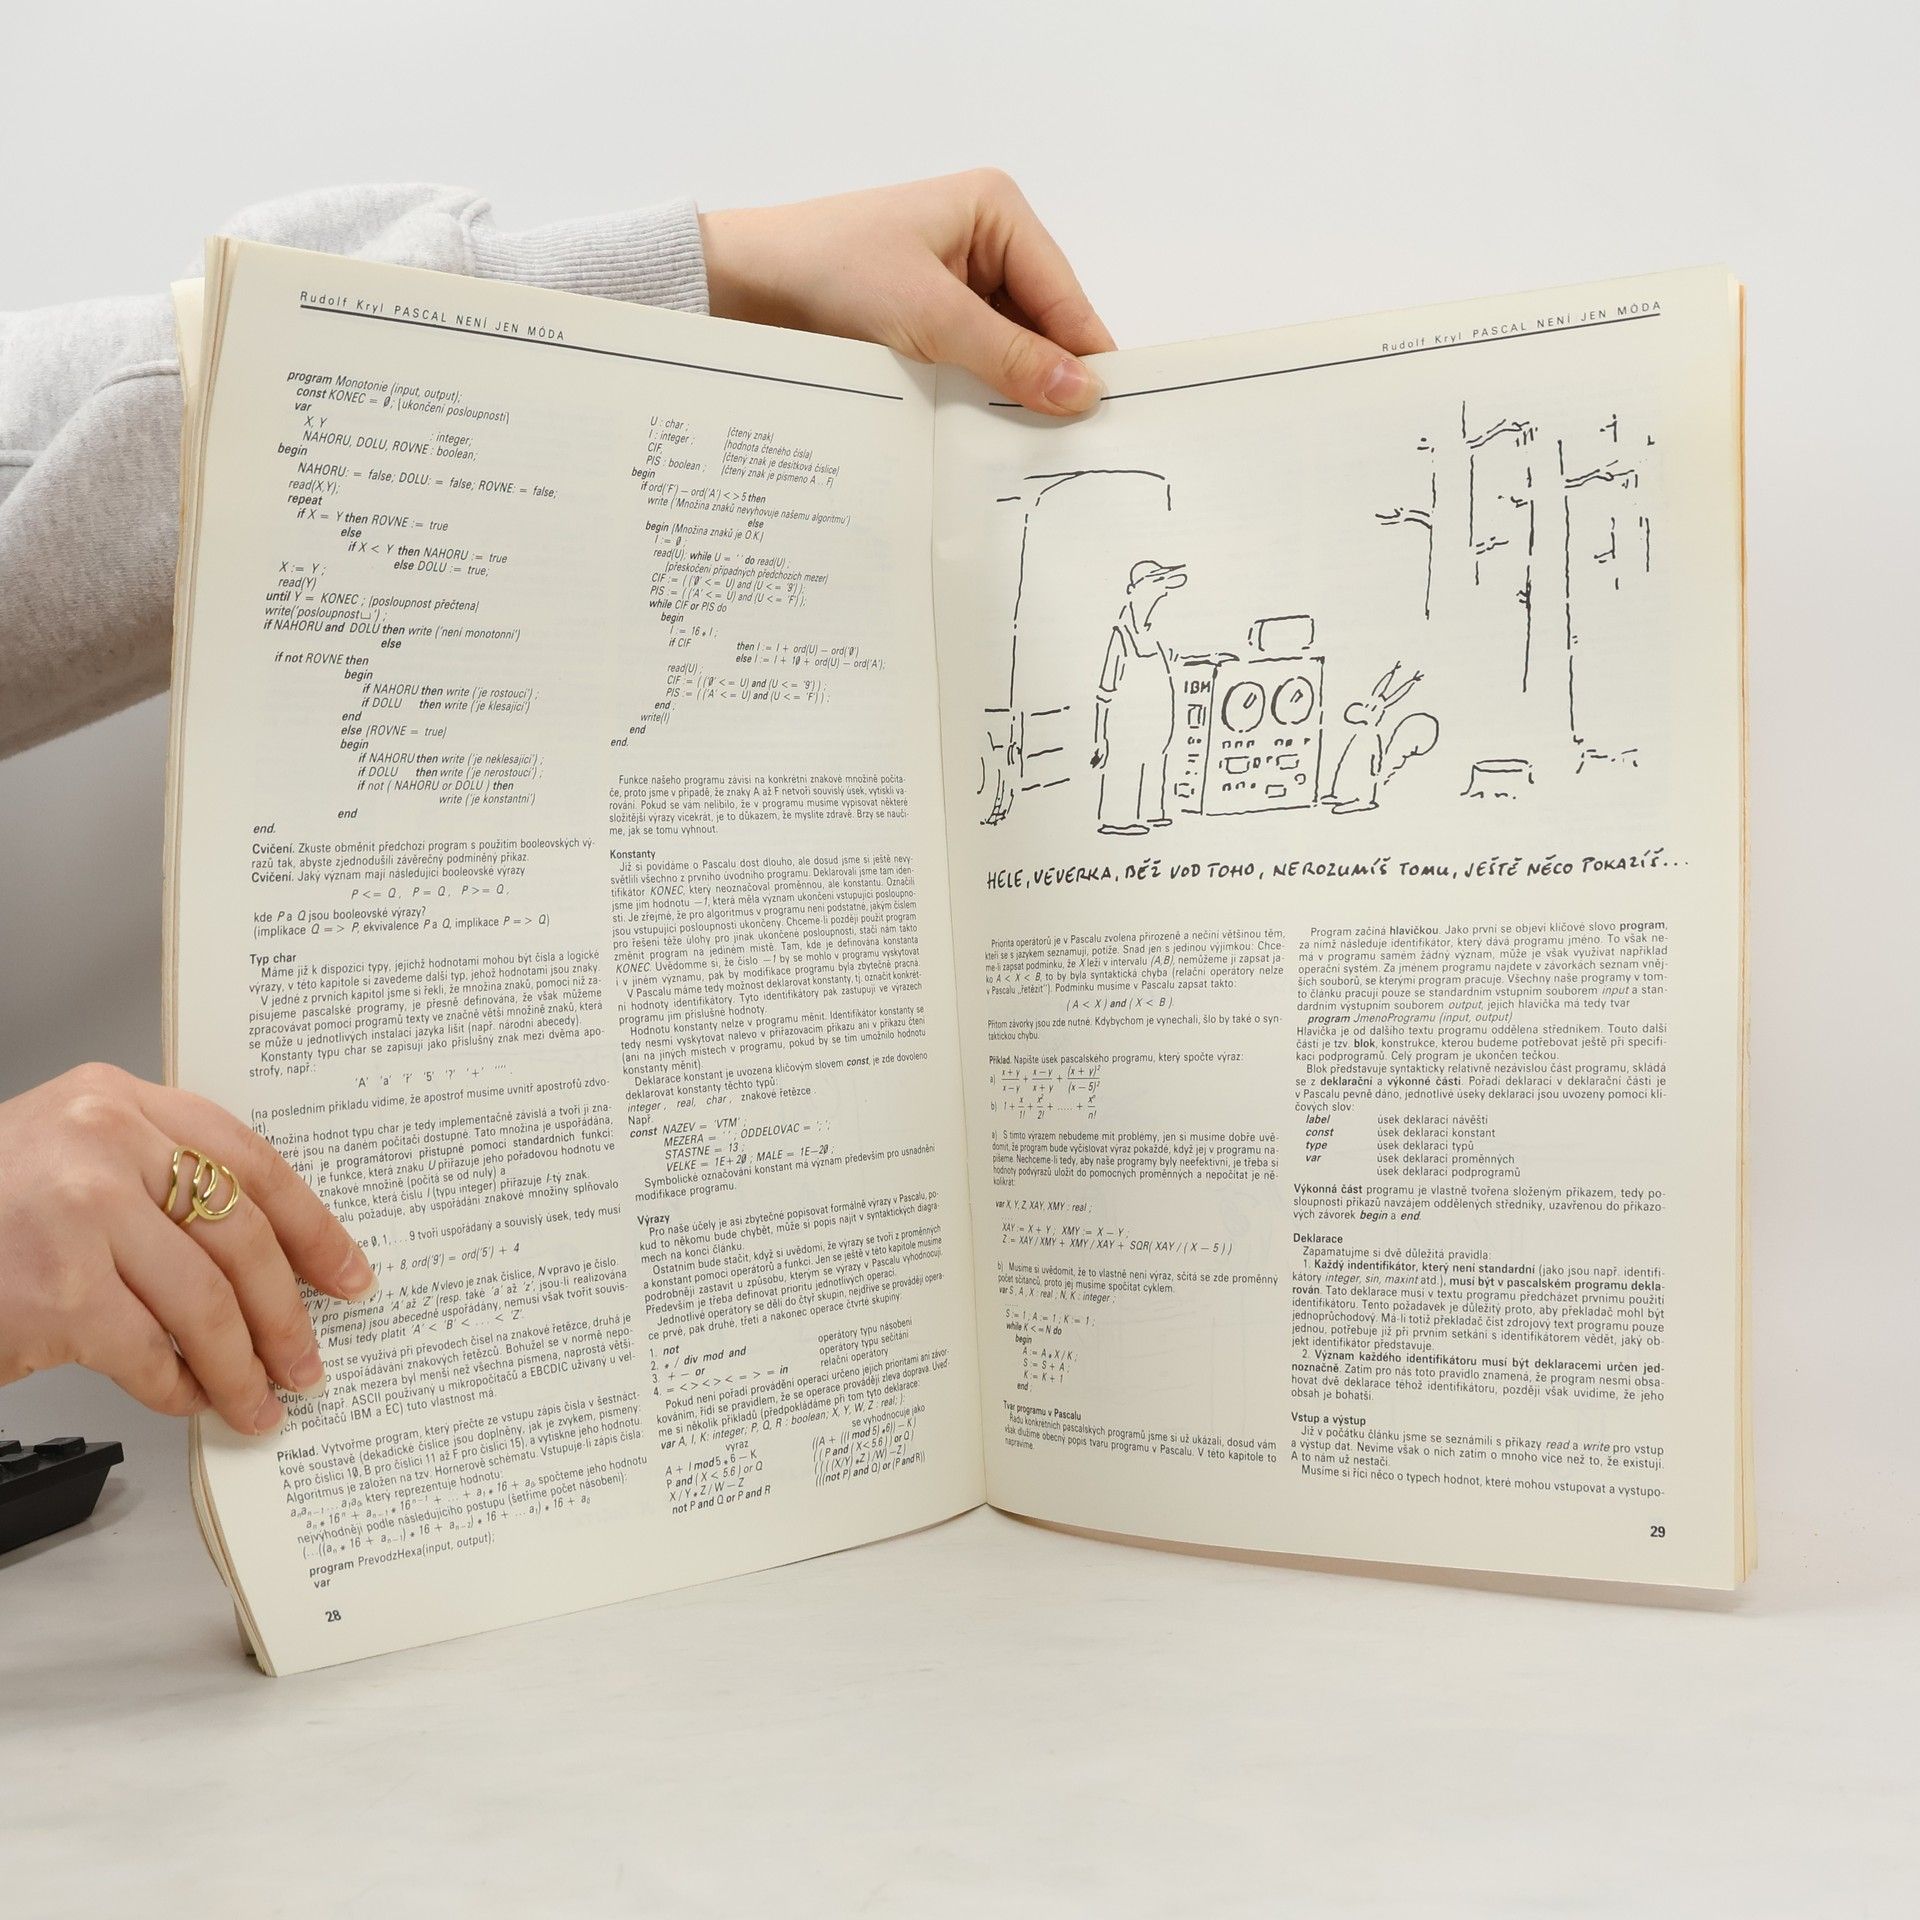 Rudolf Kryl PASCAL NENÍ JEN MÓDA
program Monotonie (input, output);
const KONEC = 0; {ukončení posloupnosti}
var
X, Y : integer;
NAHORU, DOLU, ROVNE : boolean;
begin
NAHORU: = false; DOLU: = false; ROVNE: = false;
read(X,Y);
repeat
if X = Y then ROVNE := true
else
if X < Y then NAHORU := true
else DOLU := true;
X := Y ;
read(Y)
until Y = KONEC ; {posloupnost přečtena}
write('posloupnost⎵') ;
if NAHORU and DOLU then write ('není monotonní')
else
if not ROVNE then
begin
if NAHORU then write ('je rostoucí') ;
if DOLU then write ('je klesající')
end
else {ROVNE = true}
begin
if NAHORU then write ('je neklesající') ;
if DOLU then write ('je nerostoucí') ;
if not ( NAHORU or DOLU ) then
write ('je konstantní')
end
end.
Cvičení. Zkuste obměnit předchozí program s použitím booleovských vý-
razů tak, abyste zjednodušili závěrečný podmíněný příkaz.
Cvičení. Jaký význam mají následující booleovské výrazy
P <= Q , P = Q , P >= Q ,
kde P a Q jsou booleovské výrazy?
(implikace Q => P, ekvivalence P a Q, implikace P => Q)
Typ char
Máme již k dispozici typy, jejichž hodnotami mohou být čísla a logické
výrazy, v této kapitole si zavedeme další typ, jehož hodnotami jsou znaky.
V jedné z prvních kapitol jsme si řekli, že množina znaků, pomocí níž za-
pisujeme pascalské programy, je přesně definována, že však můžeme
zpracovávat pomocí programů texty ve značně větší množině znaků, která
se může u jednotlivých instalací jazyka lišit (např. národní abecedy).
Konstanty typu char se zapisují jako příslušný znak mezi dvěma apo-
strofy, např.:
'A' 'a' 'ř' '5' '?' '+' '''' .
(na posledním příkladu vidíme, že apostrof musíme uvnitř apostrofů zdvo-
jit).
Množina hodnot typu char je tedy implementačně závislá a tvoří ji zna-
teré jsou na daném počítači dostupné. Tato množina je uspořádána,
dání je programátorovi přístupné pomocí standardních funkcí:
) je funkce, která znaku U přiřazuje jeho pořadovou hodnotu ve
znakové množině (počítá se od nuly) a
e funkce, která číslu I (typu integer) přiřazuje I-tý znak.
alu požaduje, aby uspořádání znakové množiny splňovalo
ice 0, 1, . . . 9 tvoří uspořádaný a souvislý úsek, tedy musí
') + 8, ord('9') = ord('5') + 4
') + N, kde N vlevo je znak číslice, N vpravo je číslo.
y pro písmena 'A' až 'Z' (resp. také 'a' až 'z', jsou-li realizována
písmena) jsou abecedně uspořádány, nemusí však tvořit souvis-
k. Musí tedy platit 'A' < 'B' < . . . < 'Z'.
nost se využívá při převodech čísel na znakové řetězce, druhá je
o uspořádávání znakových řetězců. Bohužel se v normě nepo-
by znak mezera byl menší než všechna písmena, naprostá větši-
kódů (např. ASCII používaný u mikropočítačů a EBCDIC užívaný u vel-
ých počítačů IBM a EC) tuto vlastnost má.
Příklad. Vytvořme program, který přečte ze vstupu zápis čísla v šestnáct-
kové soustavě (dekadické číslice jsou doplněny, jak je zvykem, písmeny:
A pro číslici 10, B pro číslici 11 až F pro číslici 15), a vytiskne jeho hodnotu.
Algoritmus je založen na tzv. Hornerově schématu. Vstupuje-li zápis čísla:
aₙaₙ₋₁ ... a₁a₀, který reprezentuje hodnotu:
aₙ * 16ⁿ + aₙ₋₁ * 16ⁿ⁻¹ + ... + a₁ * 16 + a₀, spočteme jeho hodnotu
nejvýhodněji podle následujícího postupu (šetříme počet násobení):
(...((aₙ * 16 + aₙ₋₁) * 16 + aₙ₋₂) * 16 + ... a₁) * 16 + a₀
program PrevodzHexa(input, output);
var
28
U : char ; {čtený znak}
I : integer ; {hodnota čteného čísla}
CIF, {čtený znak je desítková číslice}
PIS : boolean ; {čtený znak je písmeno A . . F}
begin
if ord('F') – ord('A') <> 5 then
write ('Množina znaků nevyhovuje našemu algoritmu')
else
begin {Množina znaků je O.K.}
I := 0 ;
read(U); while U = ' ' do read(U) ;
{přeskočení případných předchozích mezer}
CIF := ( ('0' <= U) and (U <= '9') );
PIS := ( ('A' <= U) and (U <= 'F') );
while CIF or PIS do
begin
I := 16 * I ;
if CIF then I := I + ord(U) – ord('0')
else I := I + 10 + ord(U) – ord('A');
read(U) ;
CIF := ( ('0' <= U) and (U <= '9') ) ;
PIS := ( ('A' <= U) and (U <= 'F') ) ;
end ;
write(I)
end
end.
Funkce našeho programu závisí na konkrétní znakové množině počíta-
če, proto jsme v případě, že znaky A až F netvoří souvislý úsek, vytiskli va-
rování. Pokud se vám nelíbilo, že v programu musíme vypisovat některé
složitější výrazy vícekrát, je to důkazem, že myslíte zdravě. Brzy se naučí-
me, jak se tomu vyhnout.
Konstanty
Již si povídáme o Pascalu dost dlouho, ale dosud jsme si ještě nevy-
světlili všechno z prvního úvodního programu. Deklarovali jsme tam iden-
tifikátor KONEC, který neoznačoval proměnnou, ale konstantu. Označili
jsme jím hodnotu –1, která měla význam ukončení vstupující posloupno-
sti. Je zřejmé, že pro algoritmus v programu není podstatné, jakým číslem
jsou vstupující posloupnosti ukončeny. Chceme-li později použít program
pro řešení téže úlohy pro jinak ukončené posloupnosti, stačí nám takto
změnit program na jediném místě. Tam, kde je definována konstanta
KONEC. Uvědomme si, že číslo –1 by se mohlo v programu vyskytovat
i v jiném významu, pak by modifikace programu byla zbytečně pracná.
V Pascalu máme tedy možnost deklarovat konstanty, tj. označit konkrét-
ní hodnoty identifikátory. Tyto identifikátory pak zastupují ve výrazech
programu jim příslušné hodnoty.
Hodnotu konstanty nelze v programu měnit. Identifikátor konstanty se
tedy nesmí vyskytovat nalevo v přiřazovacím příkazu ani v příkazu čtení
(ani na jiných místech v programu, pokud by se tím umožnilo hodnotu
konstanty měnit).
Deklarace konstant je uvozena klíčovým slovem const, je zde dovoleno
deklarovat konstanty těchto typů:
integer , real, char , znakové řetězce .
Např.
const NAZEV = 'VTM' ;
MEZERA = ' ' ; ODDELOVAC = ';' ;
STASTNE = 13 ;
VELKE = 1E+20 ; MALE = 1E–20 ;
Symbolické označování konstant má význam především pro usnadnění
modifikace programu.
Výrazy
Pro naše účely je asi zbytečné popisovat formálně výrazy v Pascalu, po-
kud to někomu bude chybět, může si popis najít v syntaktických diagra-
mech na konci článku.
Ostatním bude stačit, když si uvědomí, že výrazy se tvoří z proměnných
a konstant pomocí operátorů a funkcí. Jen se ještě v této kapitole musíme
podrobněji zastavit u způsobu, kterým se výrazy v Pascalu vyhodnocují.
Především je třeba definovat prioritu jednotlivých operací.
Jednotlivé operátory se dělí do čtyř skupin, nejdříve se provádějí opera-
ce prvé, pak druhé, třetí a nakonec operace čtvrté skupiny:
1. not
2. * / div mod and operátory typu násobení
3. + – or operátory typu sčítání
4. = <> < > <= >= in relační operátory
Pokud není pořadí provádění operací určeno jejich prioritami ani závor-
kováním, řídí se pravidlem, že se operace provádějí zleva doprava. Uved-
me si několik příkladů (předpokládáme při tom tyto deklarace:
var A, I, K: integer; P, Q, R : boolean; X, Y, W, Z : real; ):
výraz se vyhodnocuje jako
A + I mod 5 * 6 – K ((A + ((I mod 5) * 6)) – K)
P and ( X < 5.6 ) or Q ( ( P and ( X < 5.6 ) ) or Q )
X / Y * Z / W – Z ( ( ( (X/Y) * Z ) / W) – Z )
not P and Q or P and R (((not P) and Q) or (P and R))
Rudolf Kryl PASCAL NENÍ JEN MÓDA
IBM
HELE, VEVERKA, BĚŽ VOD TOHO, NEROZUMÍŠ TOMU, JEŠTĚ NĚCO POKAZÍŠ...
Priorita operátorů je v Pascalu zvolena přirozeně a nečiní většinou těm,
kteří se s jazykem seznamují, potíže. Snad jen s jedinou výjimkou: Chce-
me-li zapsat podmínku, že X leží v intervalu (A,B), nemůžeme ji zapsat ja-
ko A < X < B, to by byla syntaktická chyba (relační operátory nelze
v Pascalu „řetězit"). Podmínku musíme v Pascalu zapsat takto:
( A < X ) and ( X < B ) .
Přitom závorky jsou zde nutné. Kdybychom je vynechali, šlo by také o syn-
taktickou chybu.
Příklad. Napište úsek pascalského programu, který spočte výraz:
a) (x+y)/(x–y) + (x–y)/(x+y) + (x+y)²/(x–5)²
b) 1 + x/1! + x²/2! + ..... + xⁿ/n!
a) S tímto výrazem nebudeme mít problémy, jen si musíme dobře uvě-
domit, že program bude vyčíslovat výraz pokaždé, když jej v programu na-
píšeme. Nechceme-li tedy, aby naše programy byly neefektivní, je třeba si
hodnoty podvýrazů uložit do pomocných proměnných a nepočítat je ně-
kolikrát:
var X, Y, Z, XAY, XMY : real ;
XAY := X + Y ; XMY := X – Y ;
Z := XAY / XMY + XMY / XAY + SQR( XAY / ( X – 5 ) )
b) Musíme si uvědomit, že to vlastně není výraz, sčítá se zde proměnný
počet sčítanců, proto jej musíme spočítat cyklem.
var S , A , X : real ; N , K : integer ;
......
S := 1 ; A := 1 ; K := 1 ;
while K <= N do
begin
A := A * X / K ;
S := S + A ;
K := K + 1
end ;
Tvar programu v Pascalu
Řadu konkrétních pascalských programů jsme si už ukázali, dosud vám
však dlužíme obecný popis tvaru programu v Pascalu. V této kapitole to
napravíme.
Program začíná hlavičkou. Jako první se objeví klíčové slovo program,
za nímž následuje identifikátor, který dává programu jméno. To však ne-
má v programu samém žádný význam, může je však využívat například
operační systém. Za jménem programu najdete v závorkách seznam vněj-
ších souborů, se kterými program pracuje. Všechny naše programy v tom-
to článku pracují pouze se standardním vstupním souborem input a stan-
dardním výstupním souborem output, jejich hlavička má tedy tvar
program JmenoProgramu (input, output)
Hlavička je od dalšího textu programu oddělena středníkem. Touto další
částí je tzv. blok, konstrukce, kterou budeme potřebovat ještě při specifi-
kaci podprogramů. Celý program je ukončen tečkou.
Blok představuje syntakticky relativně nezávislou část programu, skládá
se z deklarační a výkonné části. Pořadí deklarací v deklarační části je
v Pascalu pevně dáno, jednotlivé úseky deklarací jsou uvozeny pomocí klí-
čových slov:
label úsek deklarací návěští
const úsek deklarací konstant
type úsek deklarací typů
var úsek deklarací proměnných
úsek deklarací podprogramů
Výkonná část programu je vlastně tvořena složeným příkazem, tedy po-
sloupností příkazů navzájem oddělených středníky, uzavřenou do příkazo-
vých závorek begin a end.
Deklarace
Zapamatujme si dvě důležitá pravidla:
1. Každý indentifikátor, který není standardní (jako jsou např. identifi-
kátory integer, sin, maxint atd.), musí být v pascalském programu dekla-
rován. Tato deklarace musí v textu programu předcházet prvnímu použití
identifikátoru. Tento požadavek je důležitý proto, aby překladač mohl být
jednoprůchodový. Má-li totiž překladač číst zdrojový text programu pouze
jednou, potřebuje již při prvním setkání s identifikátorem vědět, jaký ob-
jekt identifikátor představuje.
2. Význam každého identifikátoru musí být deklaracemi určen jed-
noznačně. Zatím pro nás toto pravidlo znamená, že program nesmí obsa-
hovat dvě deklarace téhož identifikátoru, později však uvidíme, že jeho
obsah je bohatší.
Vstup a výstup
Již v počátku článku jsme se seznámili s příkazy read a write pro vstup
a výstup dat. Nevíme však o nich zatím o mnoho více než to, že existují.
A to nám už nestačí.
Musíme si říci něco o typech hodnot, které mohou vstupovat a vystupo-
29